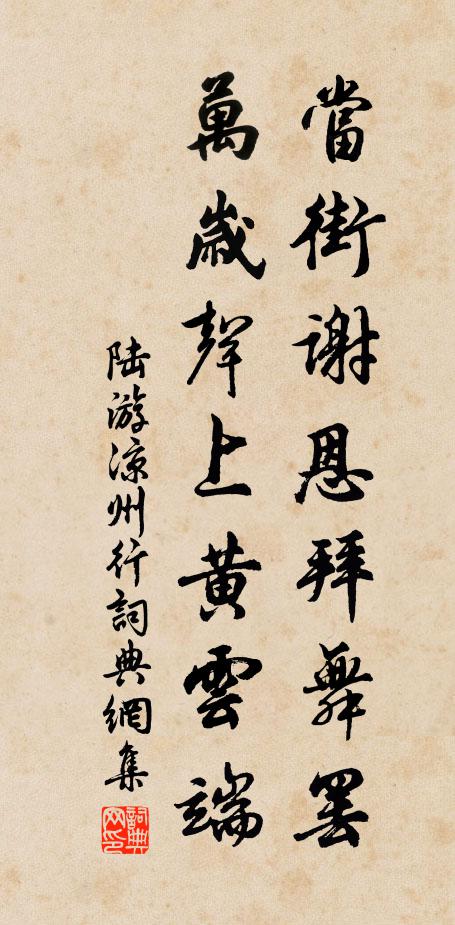 當街謝恩拜舞罢
萬歲聲上黄雲端
陆游涼州行詞典網集
詞典网印